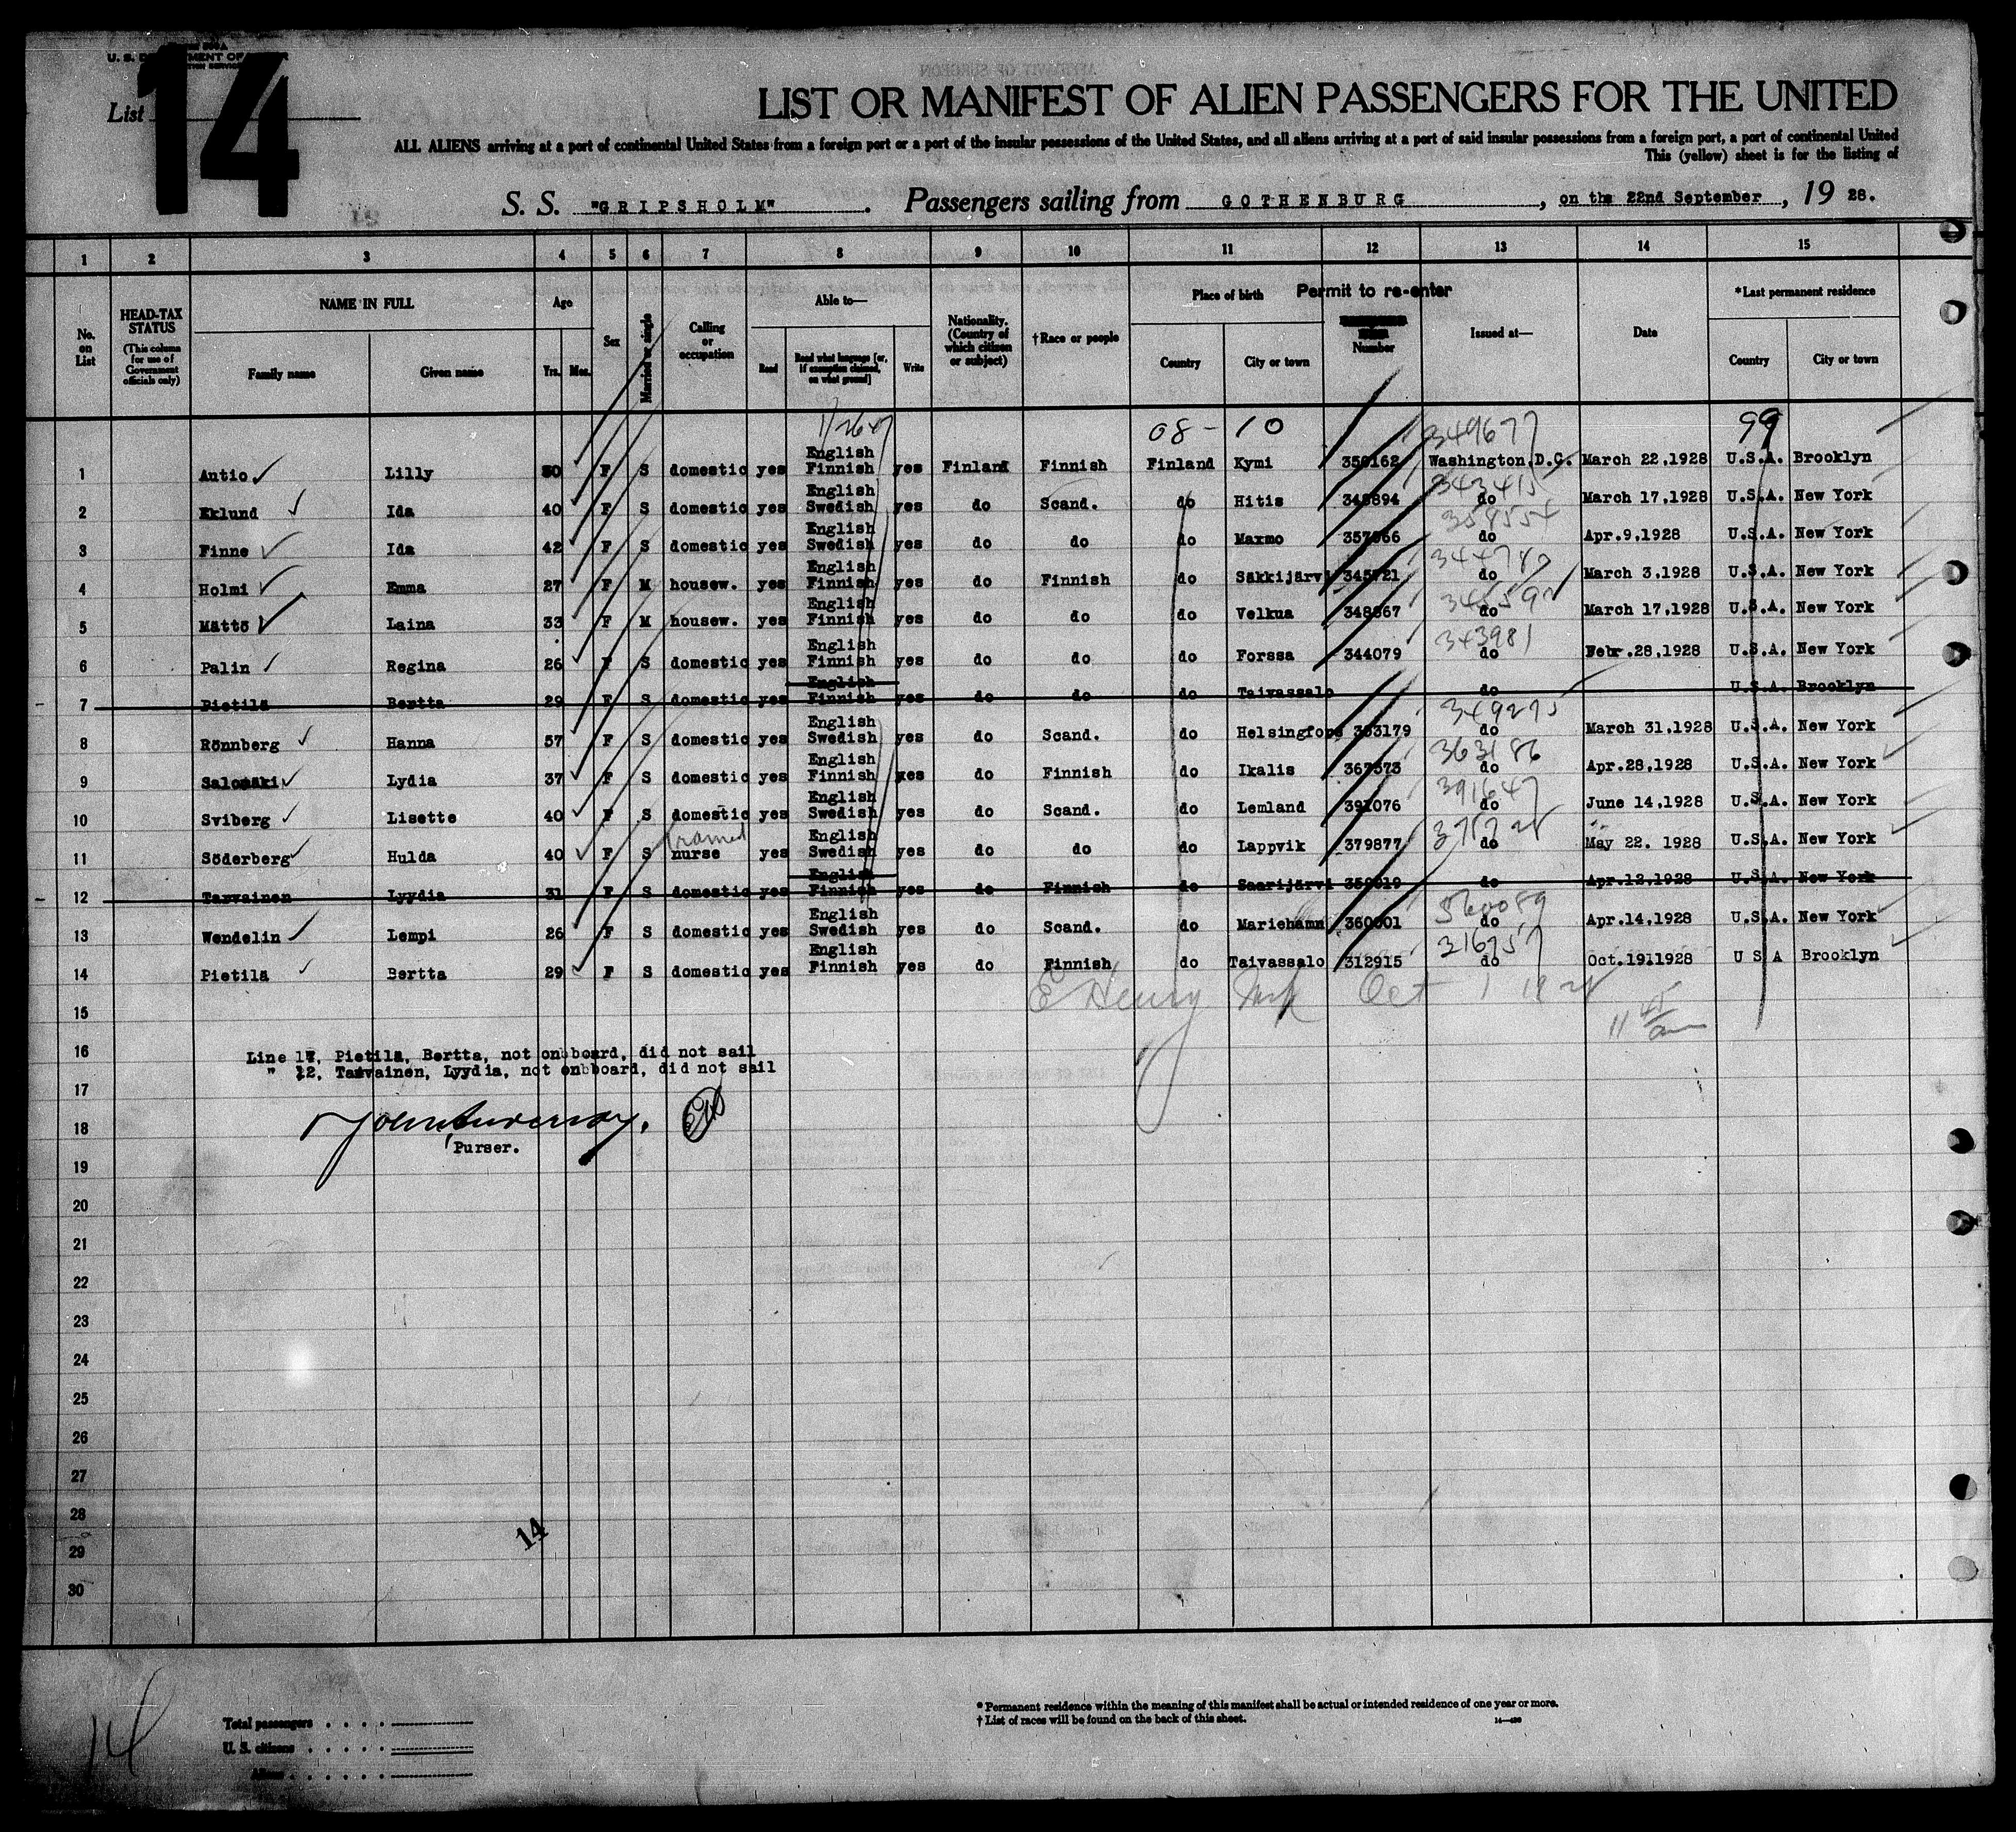 U. S. DEPARTMENT OF LABOR
List 14
LIST OR MANIFEST OF ALIEN PASSENGERS FOR THE UNITED
ALL ALIENS arriving at a port of continental United States from a foreign port or a port of the insular possessions of the United States, and all aliens arriving at a port of said insular possessions from a foreign port, a port of continental United
This (yellow) sheet is for the listing of
S. S. "GRIPSHOLM". Passengers sailing from GOTHENBURG, on the 22nd September, 19 28.
1 2 3 4 5 6 7 8 9 10 11 12 13 14 15
No. on List
HEAD-TAX STATUS (This column for use of Government officials only)
NAME IN FULL
Family name Given name
Age
Yrs. Mos.
Sex
Married or single
Calling or occupation
Able to—
Read Read what language [or, if exemption claimed, on what ground] Write
Nationality. (Country of which citizen or subject)
†Race or people
Place of birth
Country City or town
Permit to re-enter
Number
Issued at—
Date
*Last permanent residence
Country City or town
08 - 10 349677 99
1 Antio Lilly 30 F S domestic yes English Finnish yes Finland Finnish Finland Kymi 350162 Washington.D.C. March 22,1928 U.S.A. Brooklyn
343415
2 Eklund Ida 40 F S domestic yes English Swedish yes do Scand. do Hitis 348894 do March 17,1928 U.S.A. New York
3 Finne Ida 42 F S domestic yes English Swedish yes do do do Maxmo do Apr.9,1928 U.S.A. New York
4 Holmi Emma 27 F M housew. yes English Finnish yes do Finnish do Säkkijärvi 345721 do March 3,1928 U.S.A. New York
5 Mättö Laina 33 F M housew. yes English Finnish yes do do do Velkua 348867 do March 17,1928 U.S.A. New York
343981
6 Palin Regina 26 F S domestic yes English Finnish yes do do do Forssa 344079 do Febr.28,1928 U.S.A. New York
7 Pietilä Bertta 29 F S domestic yes English Finnish yes do do do Taivassalo do U.S.A. Brooklyn
349275
8 Rönnberg Hanna 57 F S domestic yes English Swedish yes do Scand. do Helsingfors 353179 do March 31,1928 U.S.A. New York
363186
9 Salomäki Lydia 37 F S domestic yes English Finnish yes do Finnish do Ikalis 367573 do Apr.28,1928 U.S.A. New York
391647
10 Sviberg Lisette 40 F S domestic yes English Swedish yes do Scand. do Lemland 391076 do June 14,1928 U.S.A. New York
trained
11 Söderberg Hulda 40 F S nurse yes English Swedish yes do do do Lappvik 379877 do May 22. 1928 U.S.A. New York
12 Tarvainen Lyydia 31 F S domestic yes English Finnish yes do Finnish do Saarijärvi 359019 do Apr.12,1928 U.S.A. New York
360089
13 Wendelin Lempi 26 F S domestic yes English Swedish yes do Scand. do Mariehamn 360001 do Apr.14,1928 U.S.A. New York
316757
14 Pietilä Bertta 29 F S domestic yes English Finnish yes do Finnish do Taivassalo 312915 do Oct.19 1928 U S A Brooklyn
Henry Oct 1
15
11 45 am
16
Line 7, Pietilä, Bertta, not on board, did not sail
" 12, Tarvainen, Lyydia, not on board, did not sail
17
18
Purser.
19
20
21
22
23
24
25
26
27
28
14
29
30
* Permanent residence within the meaning of this manifest shall be actual or intended residence of one year or more.
† List of races will be found on the back of this sheet.
14
Total passengers
U. S. citizens
Aliens